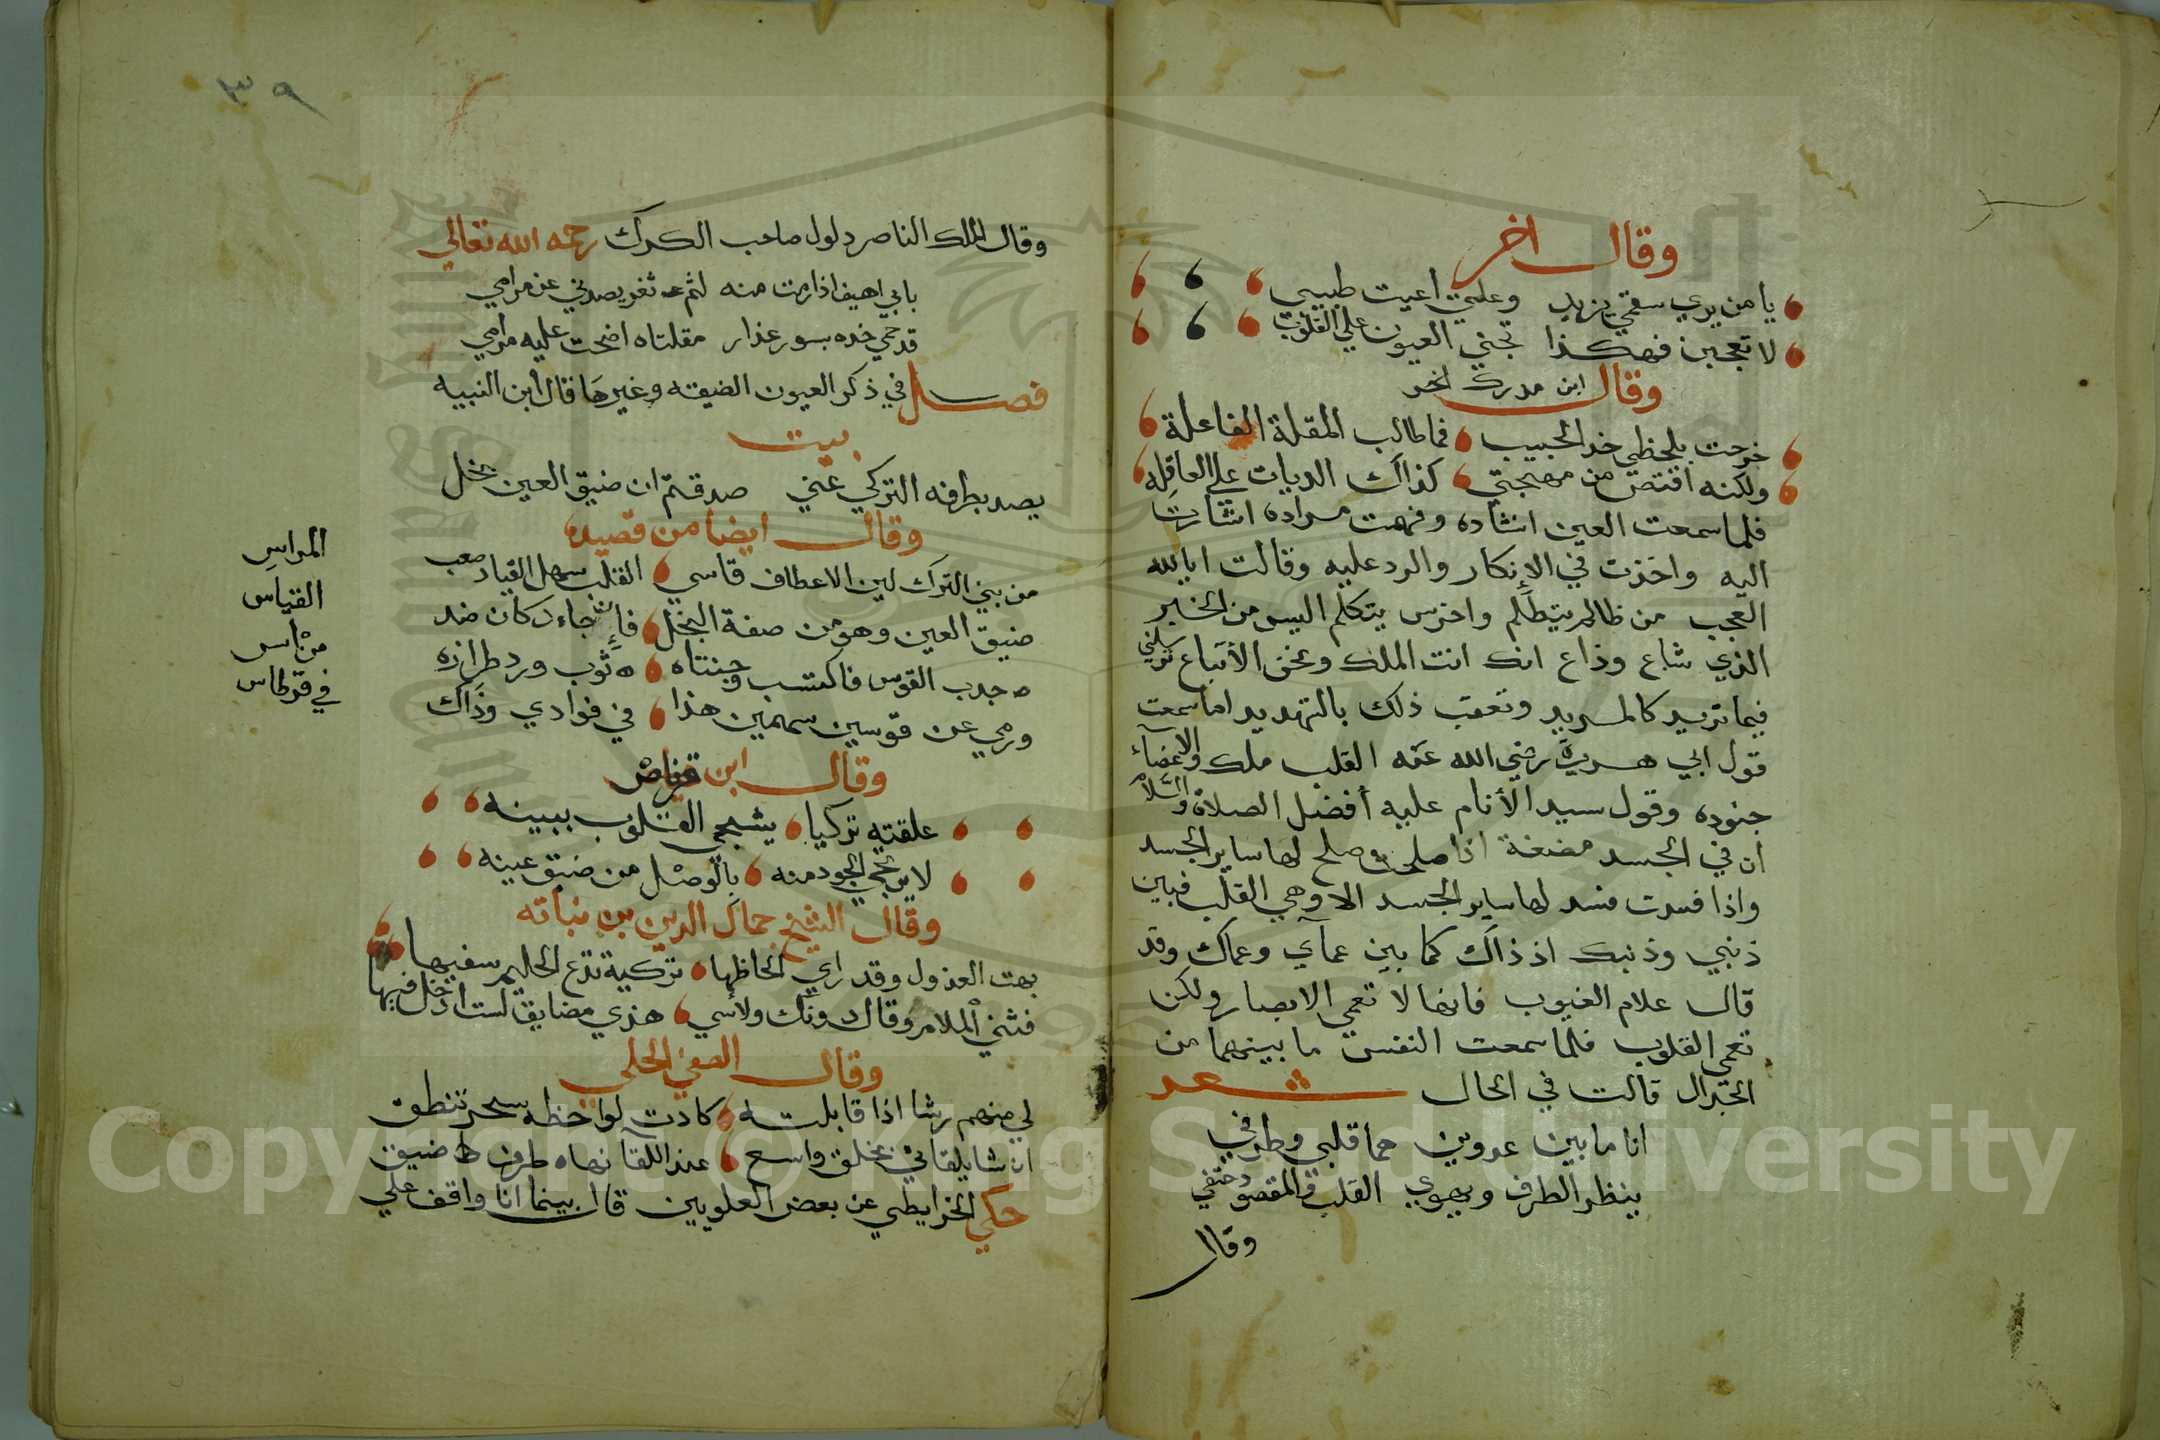 وقال اخر
يا من يري سقمي يزيد وعلتي اعيت طبيبي
لا تعجبن فهكذا تجني العيون علي القلوب
وقال ابن مدرك اخر
خرجت بلحظي خد الحبيب فما طالب المقلة الفاعلة
ولكنه اقتص من مهجتي كذاك الديات علي العاقله
فلما سمعت العين انشاده وفهمت مراده اشارت
اليه واخذت في الانكار والرد عليه وقالت ايا لله
العجب من ظالم يتظلم واخرس يتكلم اليس من الخبر
الذي شاع وذاع انك انت الملك ونحن الأتباع ترسلني
فيما تريد كالمريد وتعقب ذلك بالتهديد اما سمعت
قول ابي هريرة رضي الله عنه القلب ملك والاعضاء
جنوده وقول سيد الأنام عليه أفضل الصلاة والسلام
ان في الجسد مضغة اذا صلحت صلح لها ساير الجسد
واذا فسدت فسد لها ساير الجسد الا وهي القلب فبين
ذنبي وذنبك اذ ذاك كما بين عماي وعماك وقد
قال علام الغيوب فانها لا تعمي الابصار ولكن
تعمي القلوب فلما سمعت النفس ما بينهما من
الجدال قالت في الحال شعر
انا ما بين عدوين هما قلبي وطرفي
ينظر الطرف ويهوي القلب والمقصود حتفي
وقال
٣٩
وقال الملك الناصر دلول صاحب الكرك رحمه الله تعالي
بابي اهيف اذا رمت منه لثم ثغر يصدني عن مرامي
قد حمي خده بسور عذار مقلتاه اضحت عليه مرامي
فصل في ذكر العيون الضيقه وغيرها قال ابن النبيه
بيت
يصد بطرفه التركي عني صدقتم ان ضيق العين بخل
وقال ايضا من قصيده
من بني الترك لين الاعطاف قاسي القلب سهل القياد صعب
المراس
ضيق العين وهو من صفة البخل فان جاء د كان ضد
القياس
ه جدب القوس فاكتسب وجنتاه ه ثوب ورد طرازه
من آس
ورمي عن قوسين سهمين هذا في فوادي وذاك
في قرطاس
وقال ابن قرناص
علقته تركيا يشجي القلوب ببينه
لا يرتجي الجود منه بالوصل من ضيق عينه
وقال الشيخ جمال الدين بن نباته
بهت العذول وقد راي الحاظها تركية تدع الحليم سفيها
فثني الملام وقال دونك والاسي هذي مضايق لست ادخل فيها
وقال الصفي الحلي
لي منهم رشا اذا قابلته كادت لواحظه بسحر تنطق
ان شا يلقاني بخلق واسع عند اللقا نهاه طرف ضيق
حكي الخرايطي عن بعض العلويين قال بينما انا واقف علي
Copyright © King Saud University